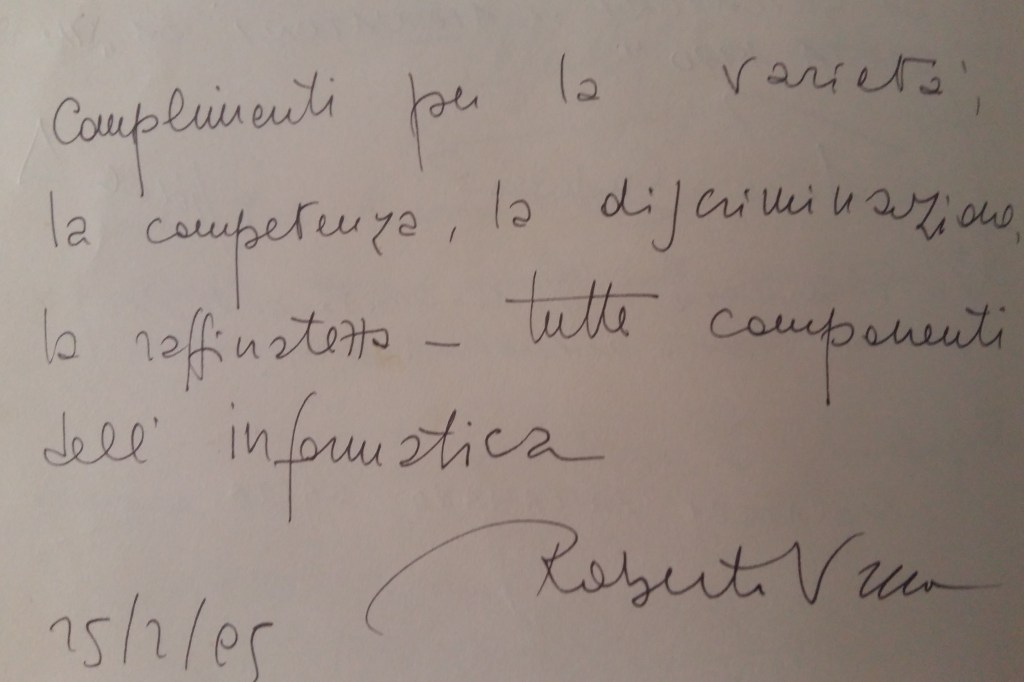 Complimenti per la varietà,
la competenza, la discriminazione,
la raffinatezza – tutte componenti
dell'informatica
Roberto Vacca